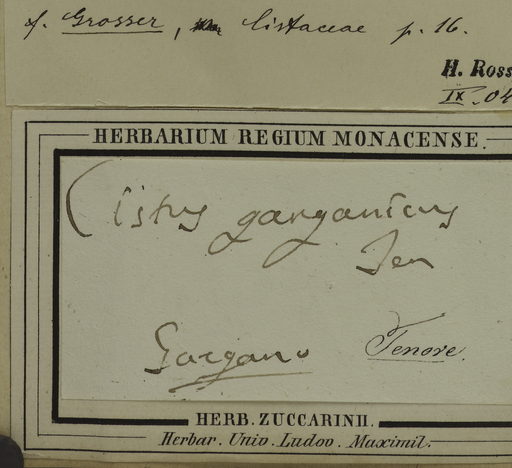 cf. Grosser, Cistaceae p. 16.
H. Ross
IX. 04
HERBARIUM REGIUM MONACENSE.
Cistus garganicus
Ten
Gargano Tenore.
HERB. ZUCCARINII.
Herbar. Univ. Ludov. Maximil.